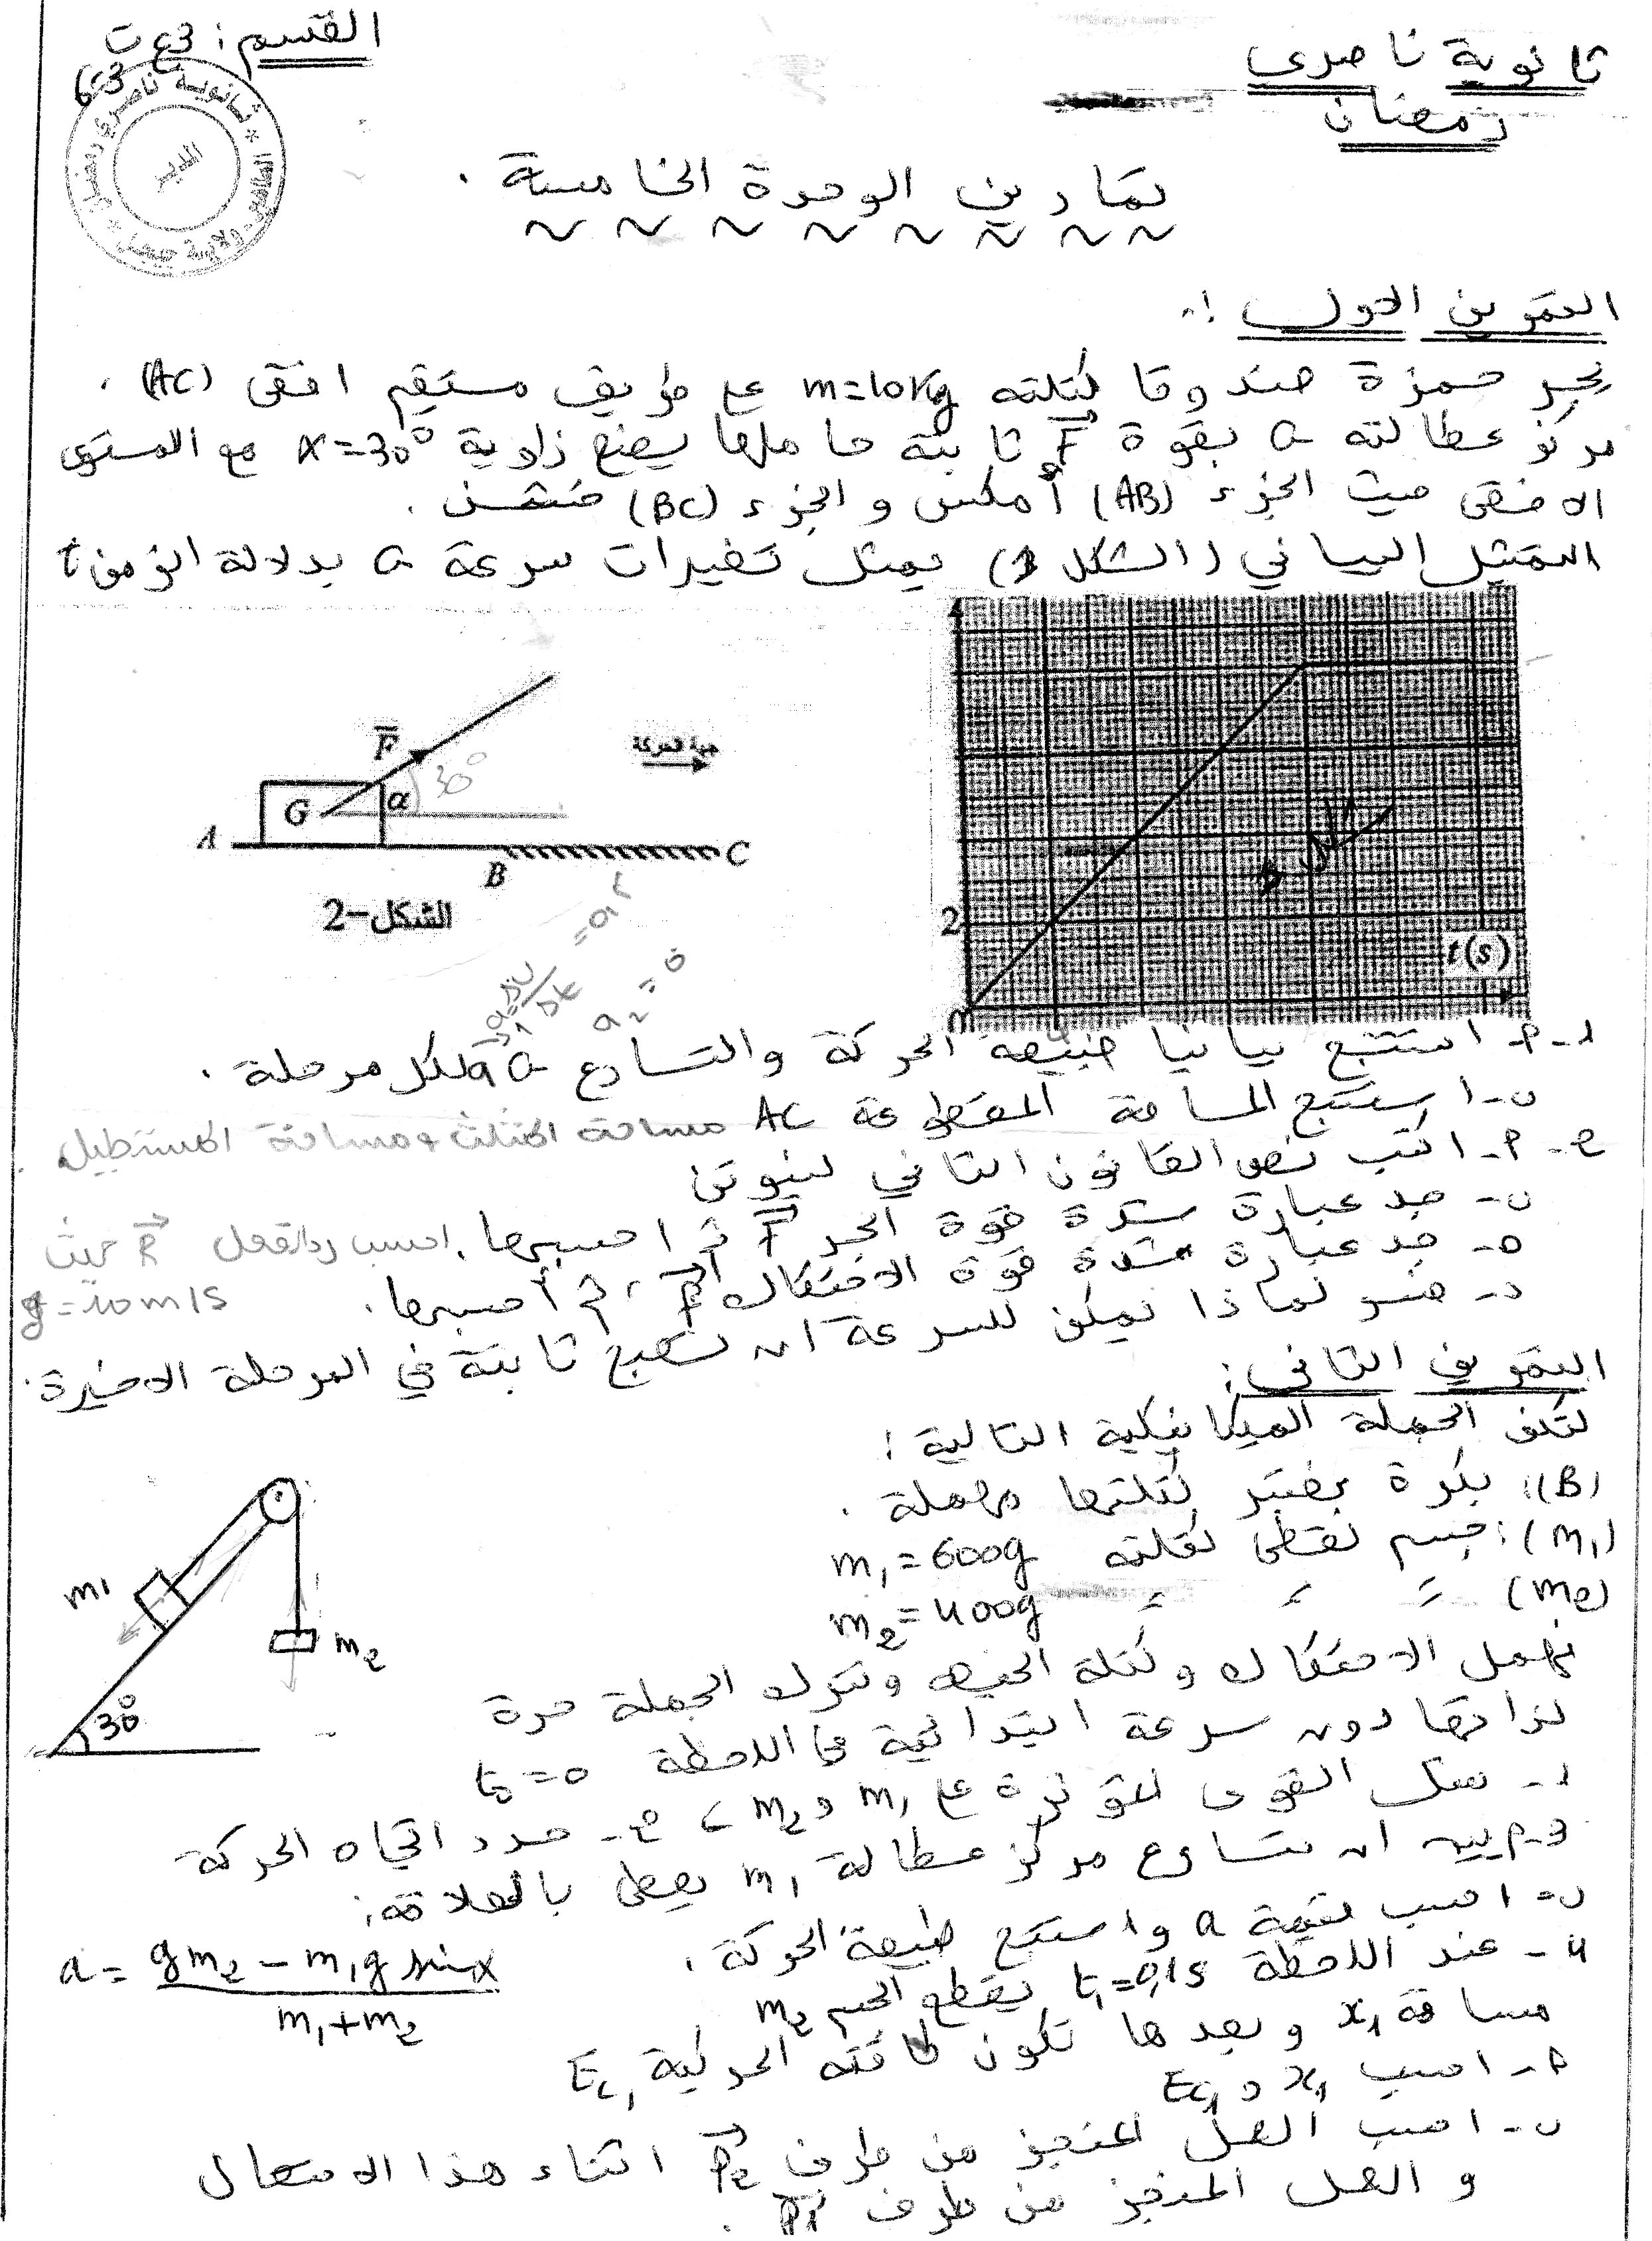 ثانوية ناصري
رمضان
القسم: 3ع ت
3ع
ثانوية ناصري رمضان
المدير
ولاية جيجل
تمارين الوحدة الخامسة.
التمرين الاول:
يجر حمزة صندوقا كتلته m=10Kg على طريق مستقيم افقي (AC).
مركز عطالته G بقوة F ثابتة حاملها يصنع زاوية α=30° مع المستوى
الافقي حيث الجزء (AB) أملس و الجزء (BC) خشن.
التمثيل البياني (الشكل 1) يمثل تغيرات سرعة G بدلالة الزمن t
F
30°
جهة الحركة
G
α
A
B
C
الشكل-2
2
t(s)
0
a₂=0
1-أ- استنتج بيانيا طبيعة الحركة والتسارع a لكل مرحلة.
ب- استنتج المسافة المقطوعة AC مساحة المثلث + مساحة المستطيل.
2-أ- اكتب نص القانون الثاني لنيوتن
ب- جد عبارة شدة قوة الجر F ثم احسبها. احسب رد الفعل R حيث
g=10m/s
ج- جد عبارة شدة قوة الاحتكاك f، ثم أحسبها.
د- فسر لماذا يمكن للسرعة ان تصبح ثابتة في المرحلة الاخيرة.
التمرين الثاني:
لتكن الجملة الميكانيكية التالية:
(B): بكرة نعتبر كتلتها مهملة.
(m₁): جسم نقطي كتلته m₁=600g
(m2) = = = m₂=400g
m1
m₂
30°
نهمل الاحتكاك وكتلة الخيط ونترك الجملة حرة
لذاتها دون سرعة ابتدائية في اللحظة t₀=0
1- مثل القوى المؤثرة على m₁ و m₂، 2- حدد اتجاه الحركة
3-أ- بين ان تسارع مركز عطالة m₁ يعطى بالعلاقة:
a = gm₂ - m₁g sinα / m₁+m₂
ب- احسب قيمة a واستنتج طبيعة الحركة.
4- عند اللحظة t₁=0,1s يقطع الجسم m₂
مسافة x₁ وبعدها تكون طاقته الحركية Ec₁
أ- احسب x₁ و Ec₁
ب- احسب العمل المنجز من طرف P₂ اثناء هذا الانتقال
و العمل المنجز من طرف P₁.